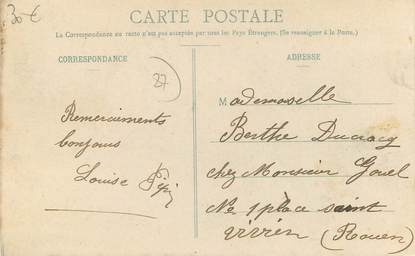 30 €
CARTE POSTALE
La Correspondance au recto n'est pas acceptée par tous les Pays Étrangers. (Se renseigner à la Poste.)
CORRESPONDANCE
ADRESSE
27
Remerciements
bonjours
Louise
Mademoiselle
Berthe Ducrocq
chez Monsieur Gouel
No 1 place saint
vivien (Rouen)